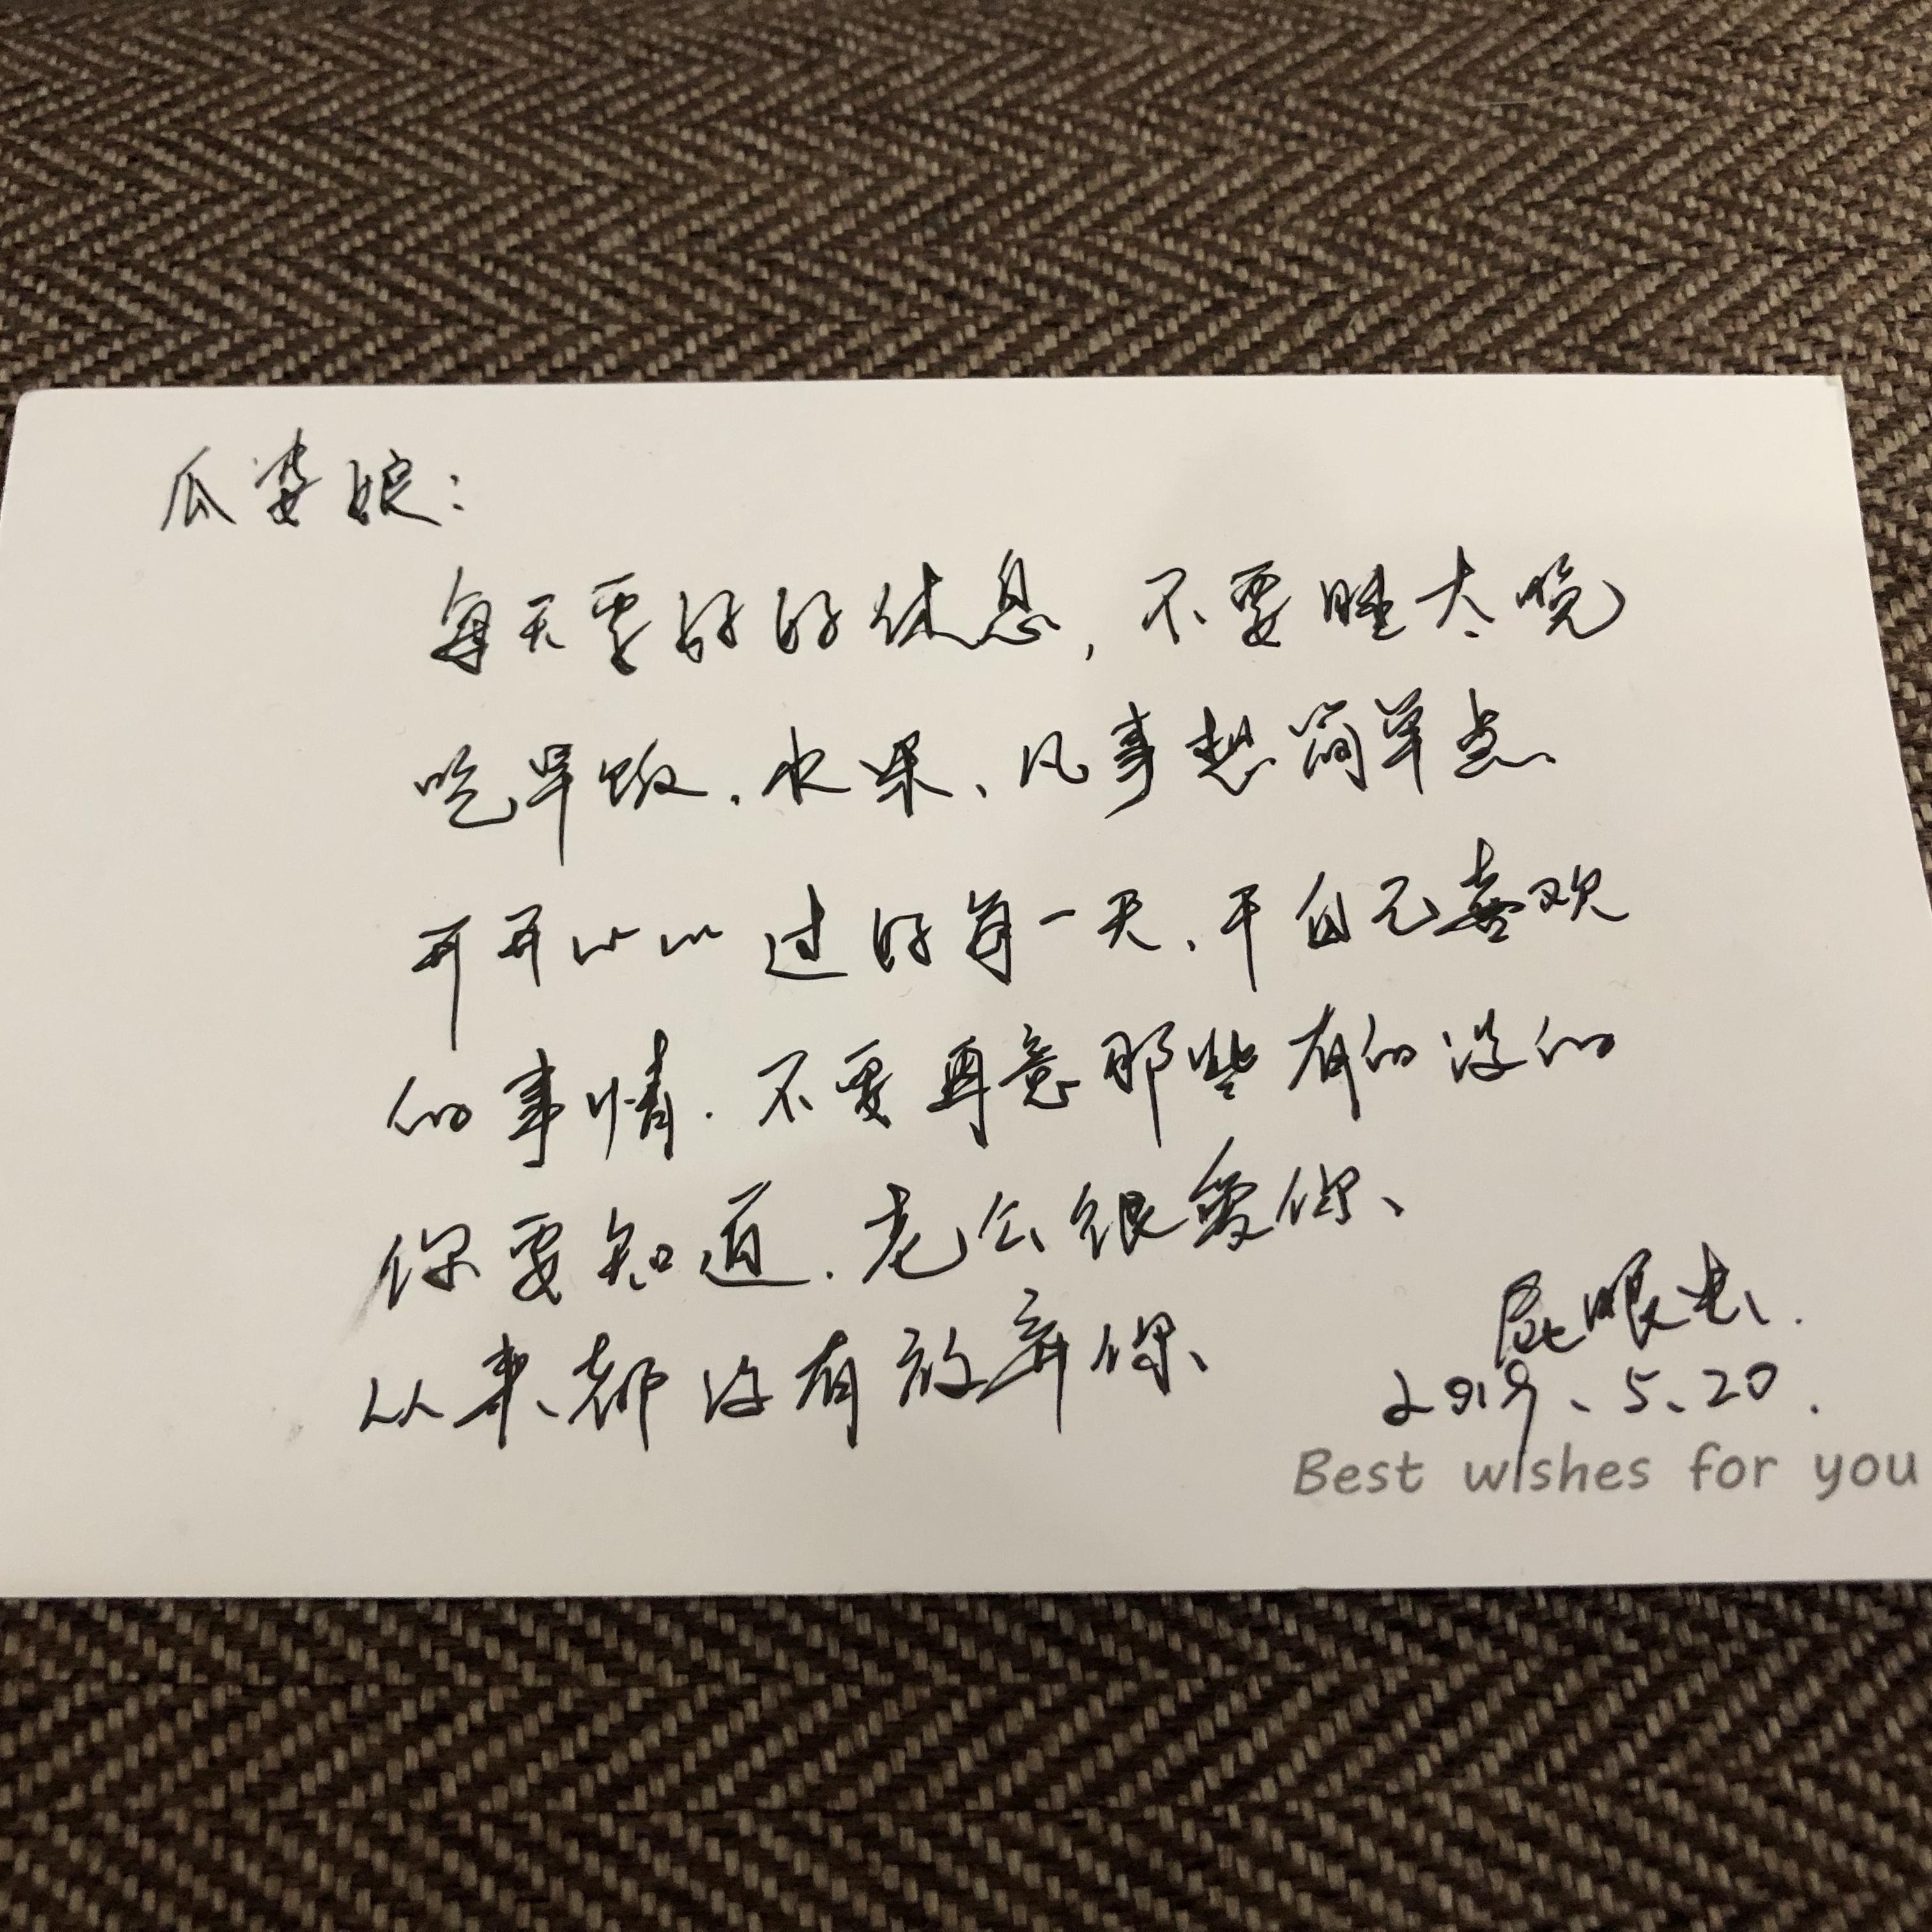 瓜婆娘：
每天要好好休息，不要睡太晚
吃早饭.水果、凡事想简单点、
开开心心过好每一天、干自己喜欢
的事情.不要再意那些有的没的
你要知道.老公很爱你、
从来都没有放弃你、
屁眼虫.
2019、5、20.
Best wishes for you